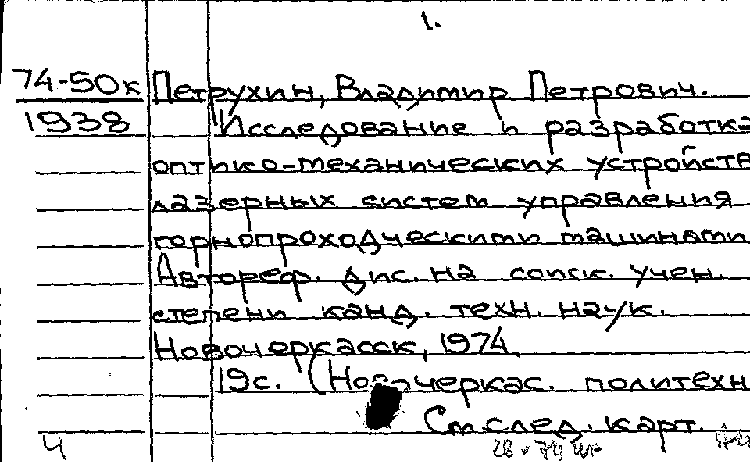 1.
74-50к Петрухин, Владимир Петрович.
1938 Исследование и разработка
оптико-механических устройств
лазерных систем управления
горнопроходческими машинами.
Автореф. дис. на соиск. учен.
степени канд. техн. наук.
Новочеркасск, 1974
19с. (Новочеркас. политехн
См.след. карт.
Ч